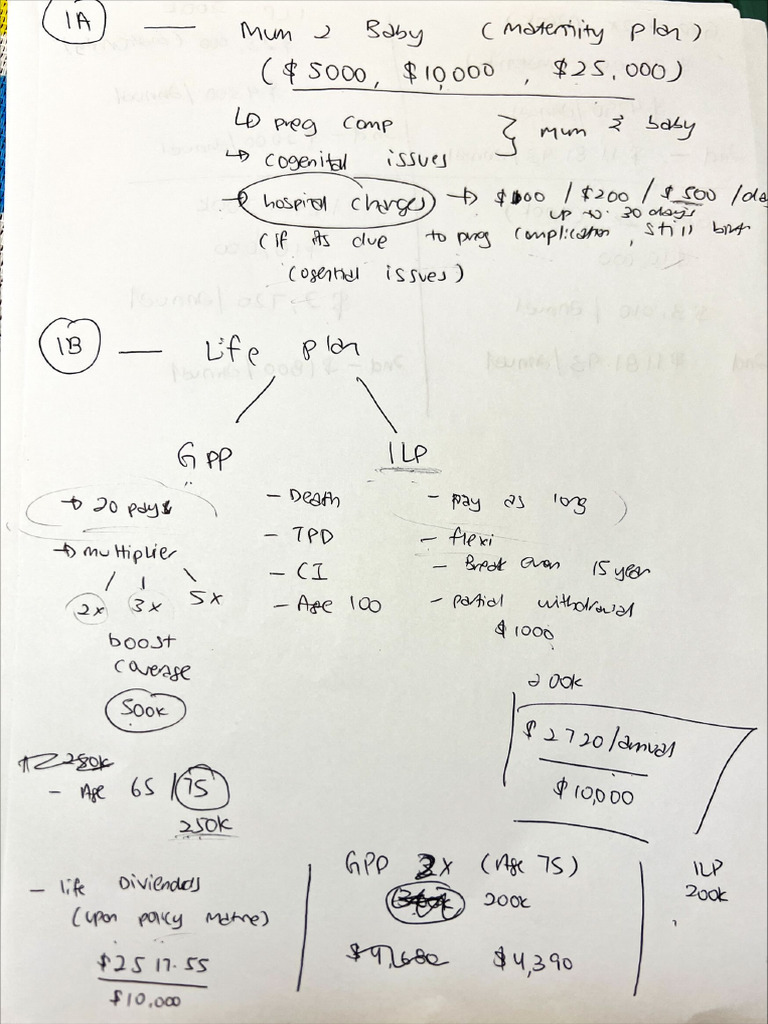 1A — Mum 2 Baby (Maternity plan)
($5000, $10,000, $25,000)
↳ preg comp } mum & baby
↳ cogenital issues
→ hospital charges → $100 / $200 / $500 /da
up to 30 days
(if its due to preg complication, still birt
cogenital issues)
1B — Life plan
GPP ILP
→ 20 pays
→ multiplier
2x 3x 5x
boost
coverage
500k
- Death
- TPD
- CI
- Age 100
- pay as long
- flexi
- Break even 15 year
- partial withdrawal
$1000
200k
$2720/annual
$10,000
250k
- Age 65 / 75
250k
- life Dividends
(upon policy mature)
$2517.55
$10,000
GPP 3x (Age 75)
200k
$4,680 $4,390
ILP
200k